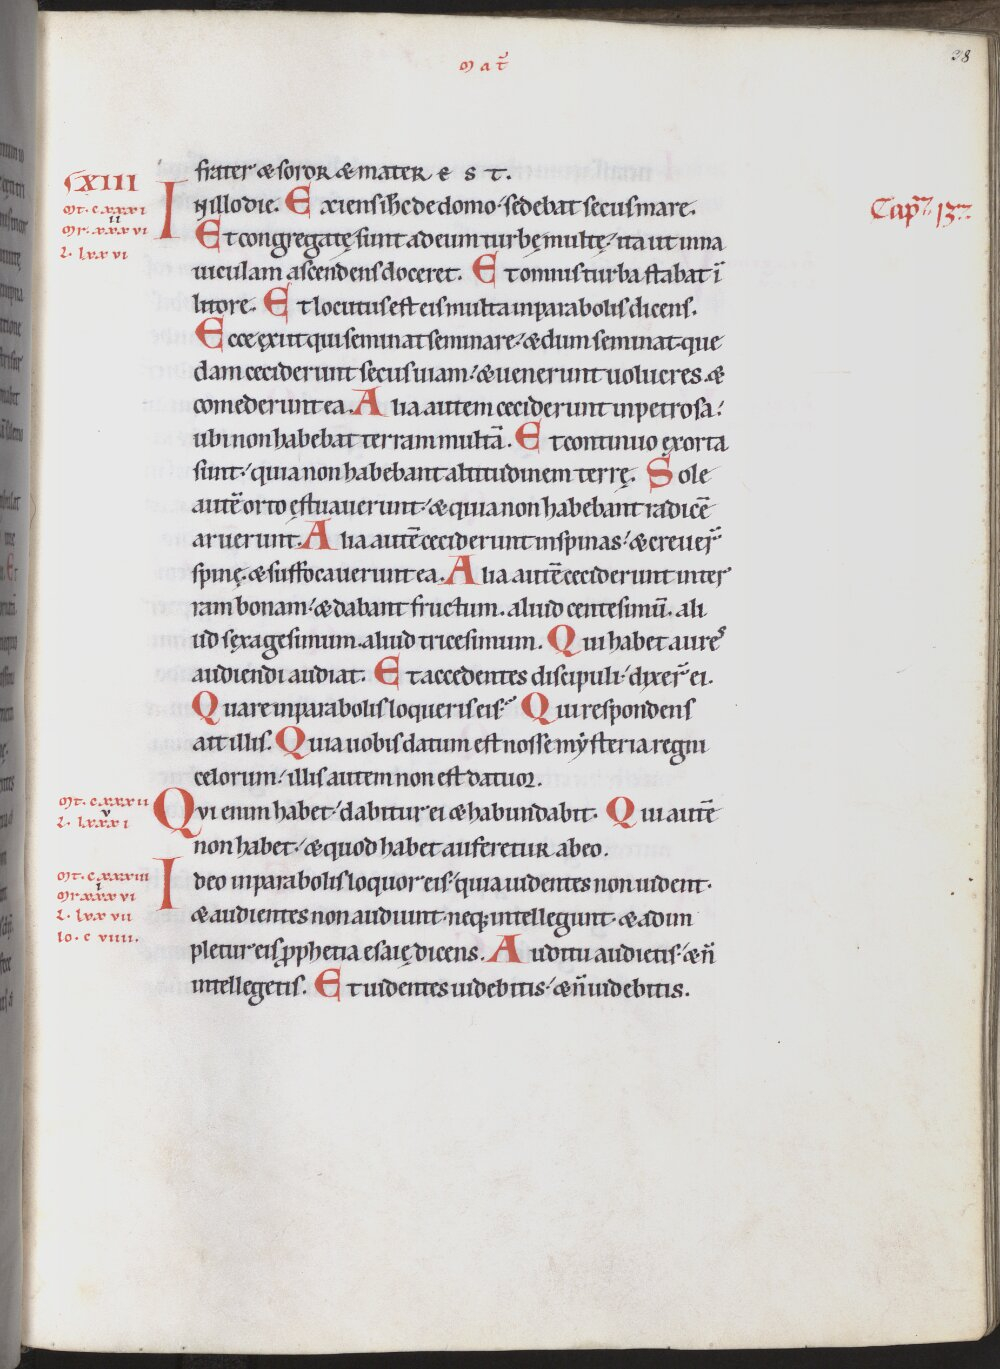 mat̄
38
frater & soror & mater e s t.
SXIII
Mt. cxxxi
ii
Mr. xxxvi
L. lxxvi
In illo die. Exiens ih̄c de domo. sedebat secus mare.
Cap. 13.
Et congregatę sunt ad eum turbę multę. ita ut in na
uiculam ascendens doceret. Et omnis turba stabat ī
litore. Et locutus est eis multa in parabolis dicens.
Ecce exiit qui seminat seminare. & dum seminat. que
dam ceciderunt secus uiam. & uenerunt uolucres. &
comederunt ea. Alia autem ceciderunt in petrosa.
ubi non habebat terram multā. Et continuo exorta
sunt. quia non habebant altitudinem terrę. Sole
autē orto ęstuauerunt. & quia non habebant radicē
aruerunt. Alia autē ceciderunt in spinas. & creuer̄
spinę. & suffocauerunt ea. Alia autē ceciderunt in ter
ram bonam. & dabant fructum. aliud centesimū. ali
ud sexagesimum. aliud tricesimum. Qui habet aures
audiendi audiat. Et accedentes discipuli. dixer̄ ei.
Quare in parabolis loqueris eis. Qui respondens
ait illis. Quia uobis datum est nosse mysteria regni
celorum. illis autem non est datuor.
Mt. cxxxii
v
L. lxxxi
Qvi enim habet. dabitur ei & habundabit. Qui autē
non habet. & quod habet auferetur ab eo.
Mt. cxxxiii
i
Mr xxxvi
L. lxxvii
Io. c viiii.
Ideo in parabolis loquor eis. quia uidentes non uident.
& audientes non audiunt. neq; intellegunt. & adim
pletur eis ꝓphetia esaię dicens. Auditu audietis. & n̄
intellegetis. Et uidentes uidebitis. & n̄ uidebitis.